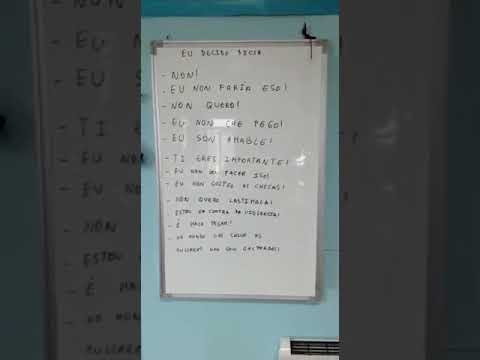 EU DECIDO DICIR
- NON!
- EU NON FARÍA ESO!
- NON QUERO!
- EU NON CHE PEGO!
- EU SON AMABLE!
- TI ERES IMPORTANTE!
- EU NON FACER ISO!
- EU NON GOLPEO AS CHICAS!
- NON QUERO LASTIMALA!
ESTOU EN CONTRA DA VIOLENCIA!
- É MALO PEGAR!
- NO MUNDO QUE CHEGUE AS
MULLERES NON SON CULPABLES!